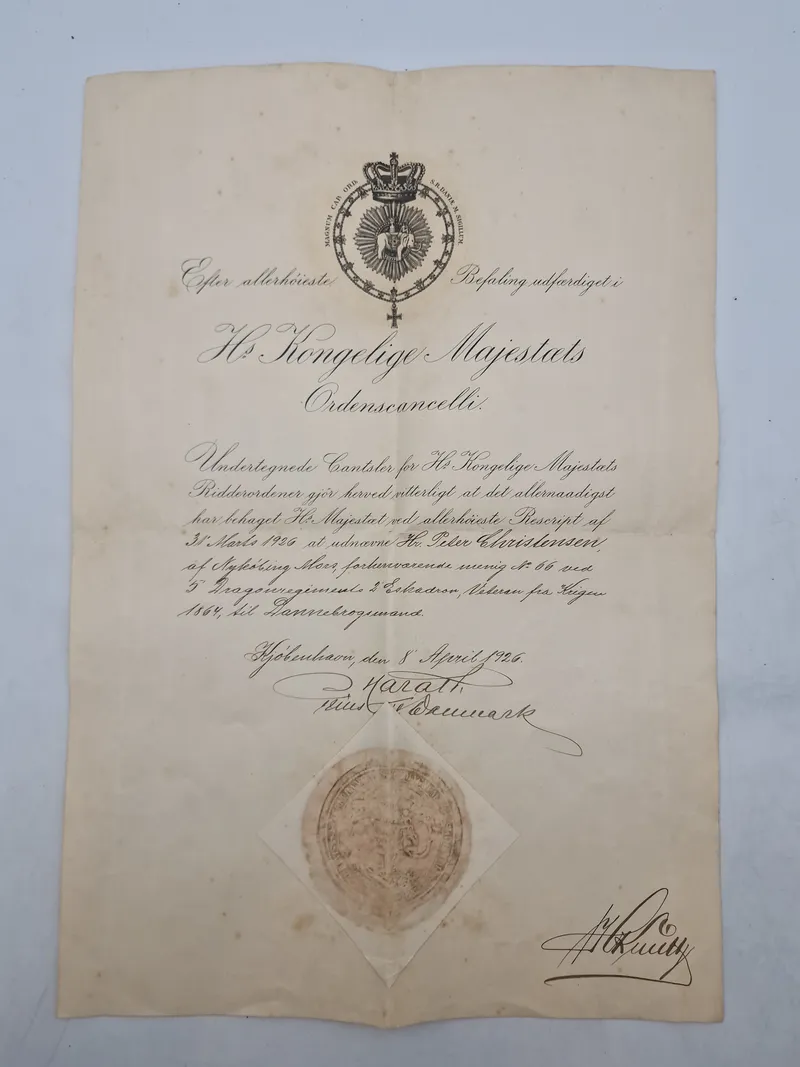 MAGNUM CAP. ORD. S. R. DANIÆ M. SIGILLUM
Efter allerhöieste Befaling udfærdiget i
Hs Kongelige Majestæts
Ordenscancelli.
Undertegnede Cantsler for Hs Kongelige Majestæts
Ridderordener gjör herved vitterligt at det allernaadigst
har behaget Hs Majestæt ved allerhöieste Rescript af
31' Marts 1926 at udnævne Hr. Peter Christensen,
af Nyköbing Mors, forhenværende menig No 66 ved
5' Dragonregiments 2' Eskadron, Veteran fra Krigen
1864, til Dannebrogsmand.
Kjöbenhavn, den 8' April 1926.
Harald
Prins til Danmark